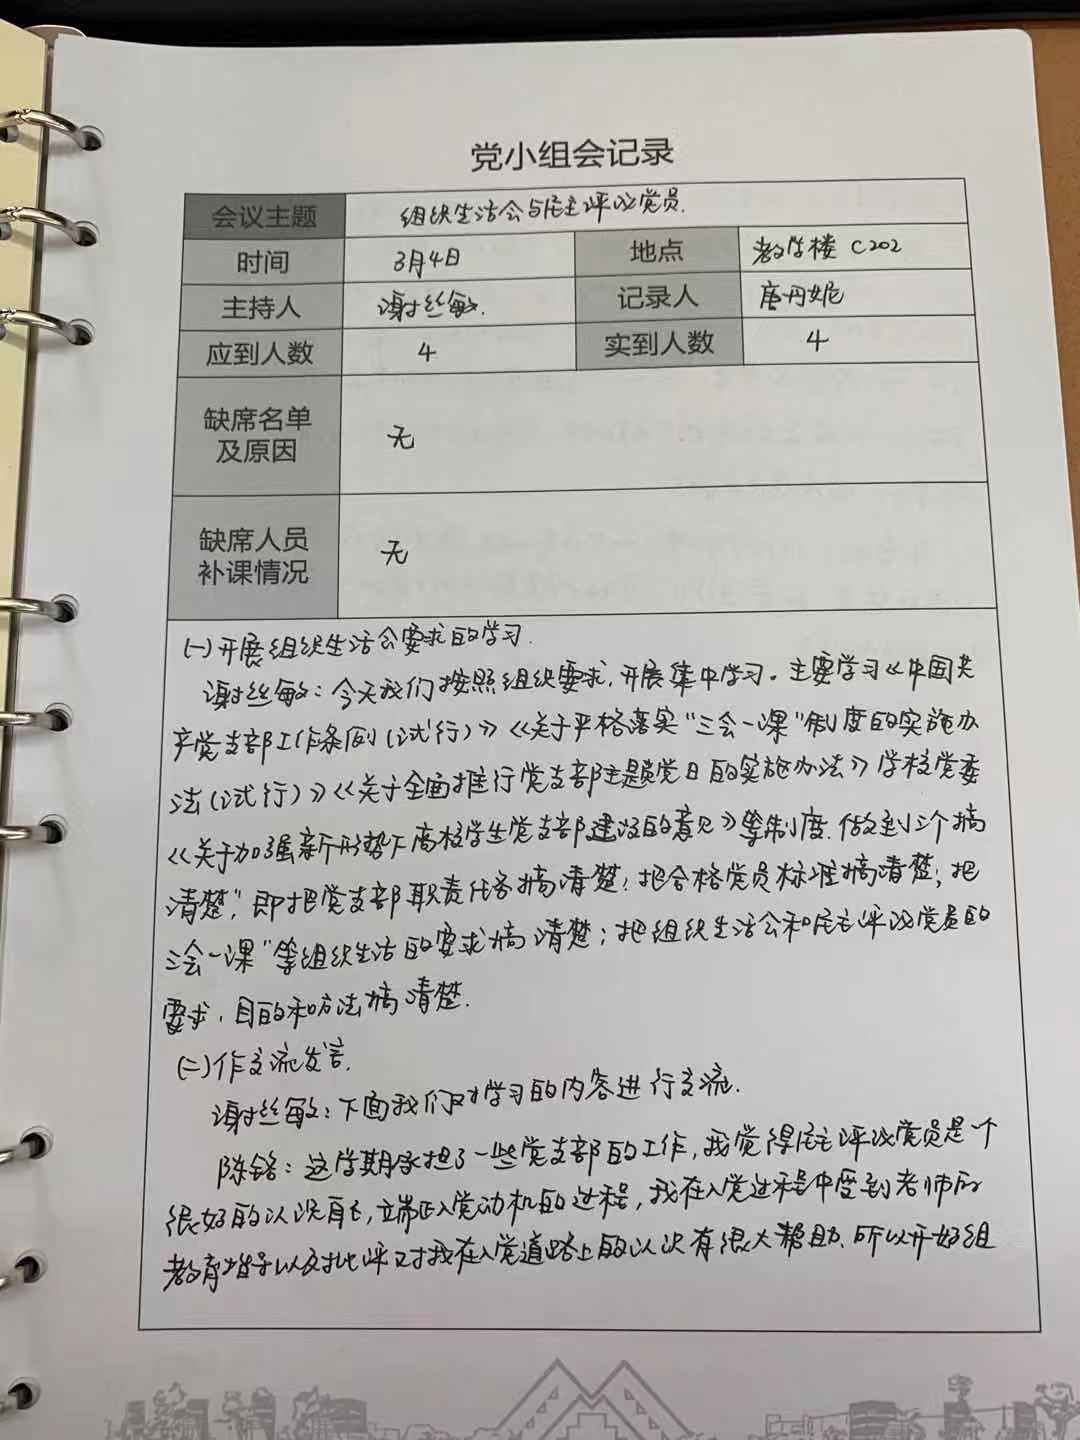 党小组会记录
会议主题 组织生活会与民主评议党员.
时间 3月4日 地点 教学楼 C202
主持人 谢丝敏. 记录人 唐丹妮
应到人数 4 实到人数 4
缺席名单
及原因 无
缺席人员
补课情况 无
(一)开展组织生活会要求的学习.
谢丝敏：今天我们按照组织要求,开展集中学习。主要学习《中国共
产党支部工作条例(试行)》《关于严格落实"三会一课"制度的实施办
法(试行)》《关于全面推行党支部主题党日的实施办法》学校党委
《关于加强新形势下高校学生党支部建设的意见》等制度.做到三个搞
清楚",即把党支部职责任务搞清楚;把合格党员标准搞清楚;把
三会一课"等组织生活的要求搞清楚;把组织生活会和民主评议党员的
要求,目的和方法搞清楚.
(二)作交流发言.
谢丝敏:下面我们对学习的内容进行交流.
陈铭:这学期承担了一些党支部的工作,我觉得民主评议党员是个
很好的认识自己,端正入党动机的过程,我在入党过程中受到老师的
教育指导以及批评对我在入党道路上的认识有很大帮助.所以开好组